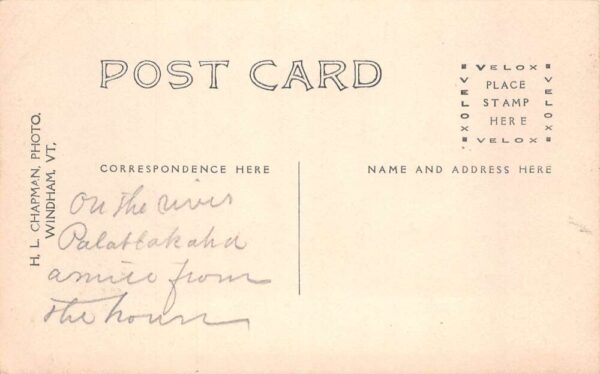 POST CARD
VELOX
VELOX
PLACE
STAMP
HERE
VELOX
VELOX
H. L. CHAPMAN, PHOTO.
WINDHAM, VT.
CORRESPONDENCE HERE
NAME AND ADDRESS HERE
On the river
Palatlakaha
a mile from
the house